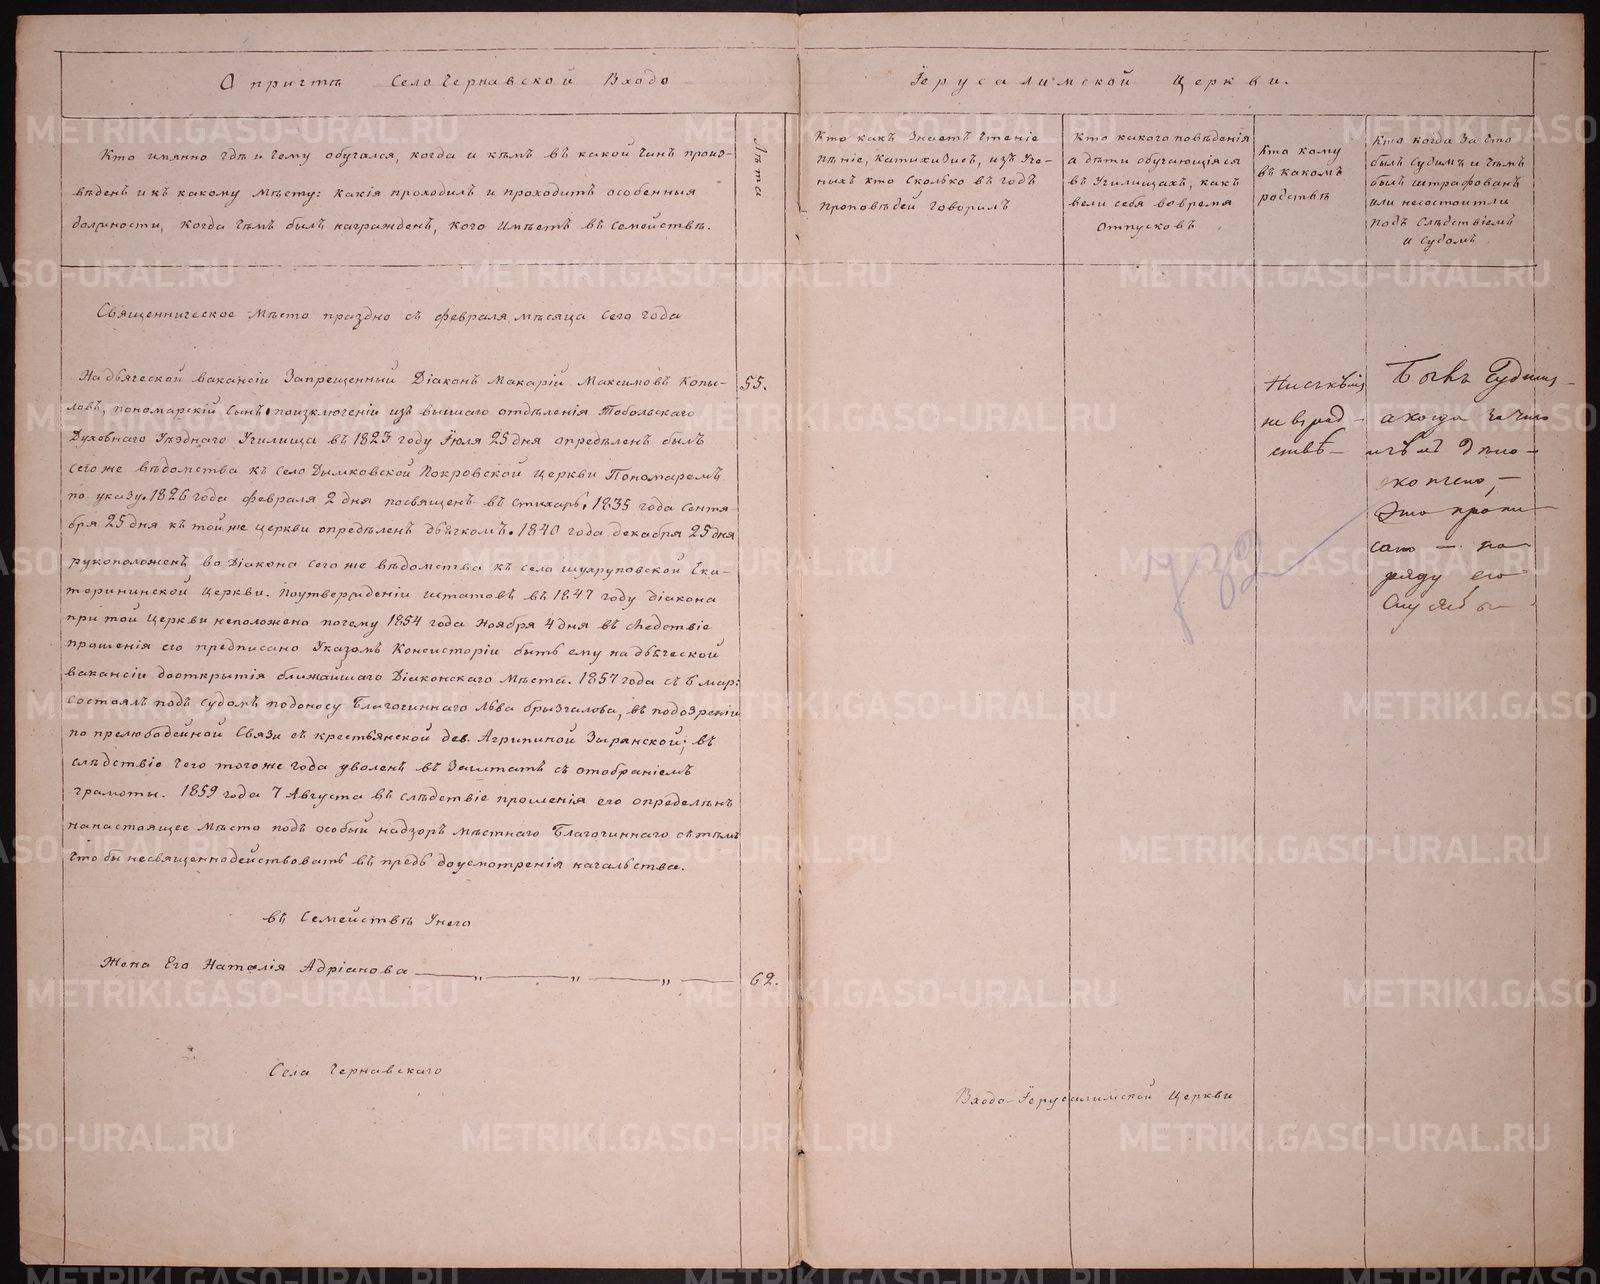 О причтѣ Село Чернавской Входо
Іерусалимской Церкви.
Кто имянно гдѣ и чему обучался, когда и кѣмъ въ какой чинъ произ-
вѣденъ и къ какому Мѣсту: Какія проходилъ и проходитъ особенныя
должности, когда чѣмъ былъ награжденъ, кого Имѣетъ въ Семействѣ.
Лѣта
Кто какъ Знаетъ Чтеніе
пѣніе, катихизисъ, изъ Уче-
ныхъ кто Сколько въ годъ
Проповѣдей Говорилъ
Кто какого повѣденія
а дѣти обучающіяся
въ Училищахъ, какъ
вели себя во время
отпусковъ
Кто кому
въ какомъ
родствѣ
Кто когда За что
былъ Судимъ и чѣмъ
былъ штрафованъ
или несостоитли
подъ Слѣдствіемъ
и Судомъ.
Священническое Мѣсто праздно съ февраля мѣсяца Сего года
На дьяческой вакансіи Запрещенный Діаконъ Макарій Максимовъ Копы-
ловъ, пономарскій Сынъ, поизключеніи изъ высшаго отдѣленія Тобольскаго
Духовнаго Уѣзднаго Училища въ 1823 году Іюля 25 дня опредѣленъ былъ
сегоже вѣдомства къ Село Дымковской Покровской Церкви Пономаремъ
по указу. 1826 года февраля 2 дня посвященъ въ Стихарь. 1835 года Сентя-
бря 25 дня къ тойже церкви опредѣленъ дьячкомъ. 1840 года декабря 25 дня
рукоположенъ во Діакона сегоже вѣдомства къ село шухруповской Ека-
терининской Церкви. Поутвержденіи штатовъ въ 1847 году діакона
при той Церкви неположено почему 1854 года Ноября 4 дня въ слѣдствіе
прошенія его предписано Указомъ Консисторіи быть ему на дьяческой
вакансіи дооткрытія ближайшаго Діаконскаго Мѣста. 1857 года съ 6 мар:
состоялъ подъ судомъ подоносу Благочиннаго Льва брызгалова, въ подозреніи
по прелюбодейной Связи съ крестьянской дев. Агрипиной Зырянской; въ
слѣдствіе чего тогоже года уволенъ въ Заштатъ съ отобраніемъ
грамоты. 1859 года 7 Августа въ слѣдствіе прошенія его опредѣленъ
на настоящее Мѣсто подъ особый надзоръ Мѣстнаго Благочиннаго съ тѣмъ
что бы несвященнодействовать въ предь доусмотренія начальства.
55.
Ни съ кѣмъ
не въ род-
ствѣ
Былъ Судимъ
а когда за что
и чѣмъ
Это пропи-
сано по
ряду его
Службы
732
въ Семействѣ Унего
Жена Его Наталія Адріанова
62.
Села Чернавскаго
Входо-Іерусалимской Церкви
METRIKI.GASO-URAL.RU